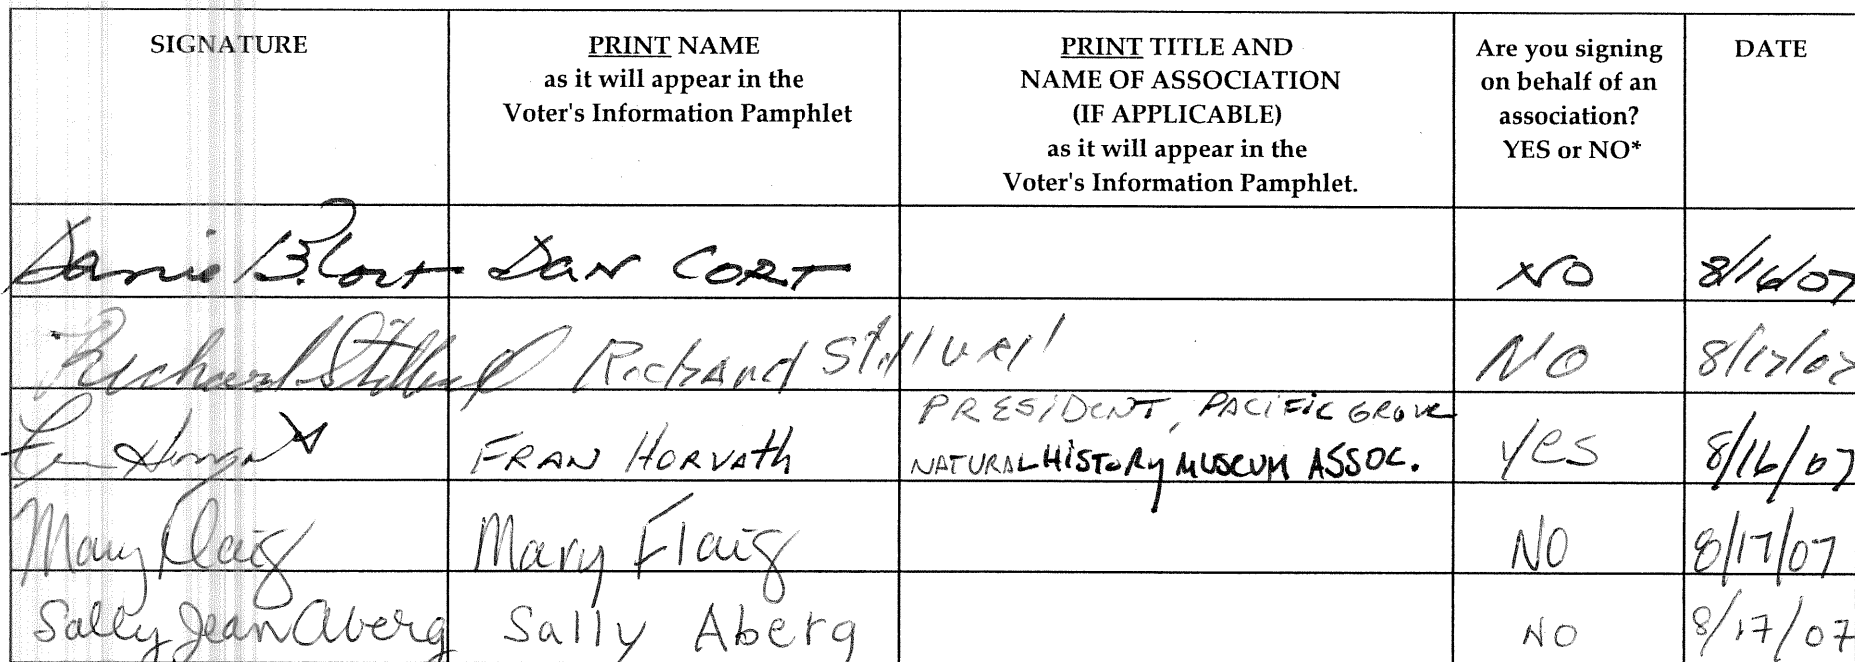 SIGNATURE
PRINT NAME
as it will appear in the
Voter's Information Pamphlet
PRINT TITLE AND
NAME OF ASSOCIATION
(IF APPLICABLE)
as it will appear in the
Voter's Information Pamphlet.
Are you signing
on behalf of an
association?
YES or NO*
DATE
DAN CORT NO 8/16/07
Richard Stillwell NO 8/17/07
PRESIDENT, PACIFIC GROVE
FRAN HORVATH NATURAL HISTORY MUSEUM ASSOC. YES 8/16/07
Mary Flaig Mary Flaig NO 8/17/07
Sally Jean Aberg Sally Aberg NO 8/17/07